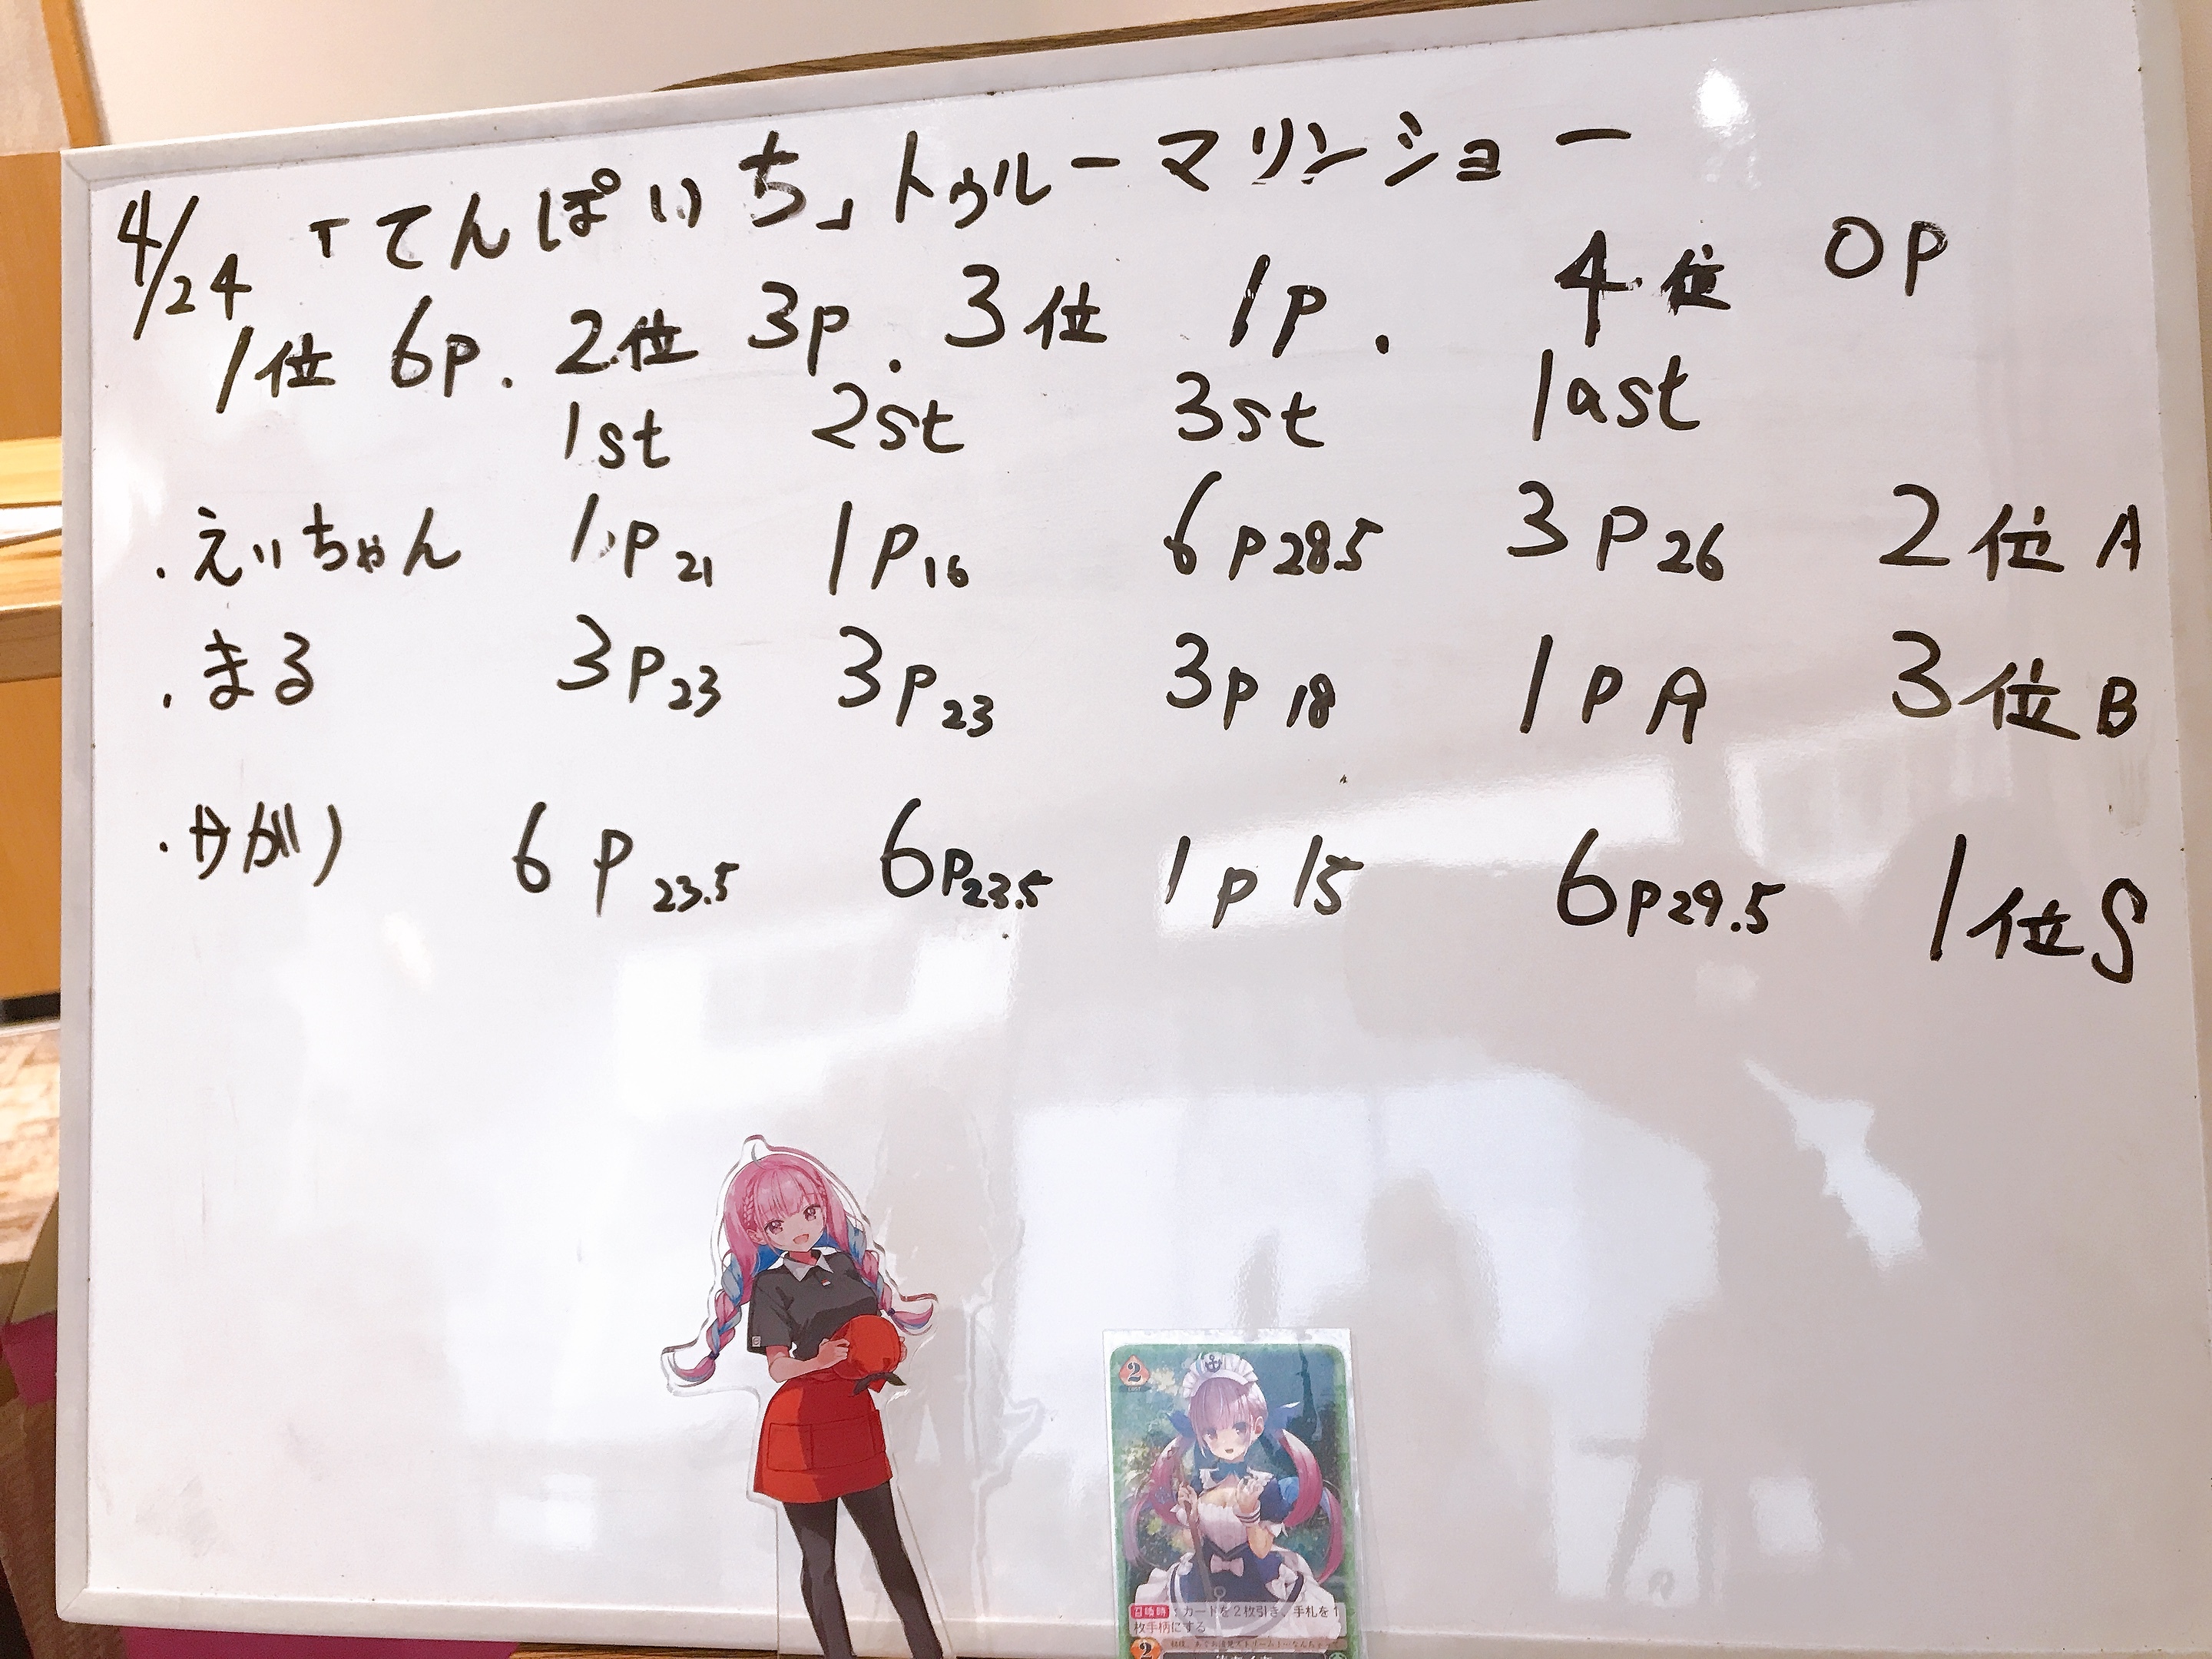 4/24 「てんぱいち」トゥルーマリンショー
1位 6p. 2位 3p. 3位 1p. 4位 0p
1st 2st 3st last
・えいちゃん 1p21 1p16 6p28.5 3p26 2位A
・まる 3p23 3p23 3p18 1pA 3位B
・やがり 6p23.5 6p23.5 1p15 6p29.5 1位S
2
COST
召喚時:カードを2枚引き、手札を1
枚手柄にする
2